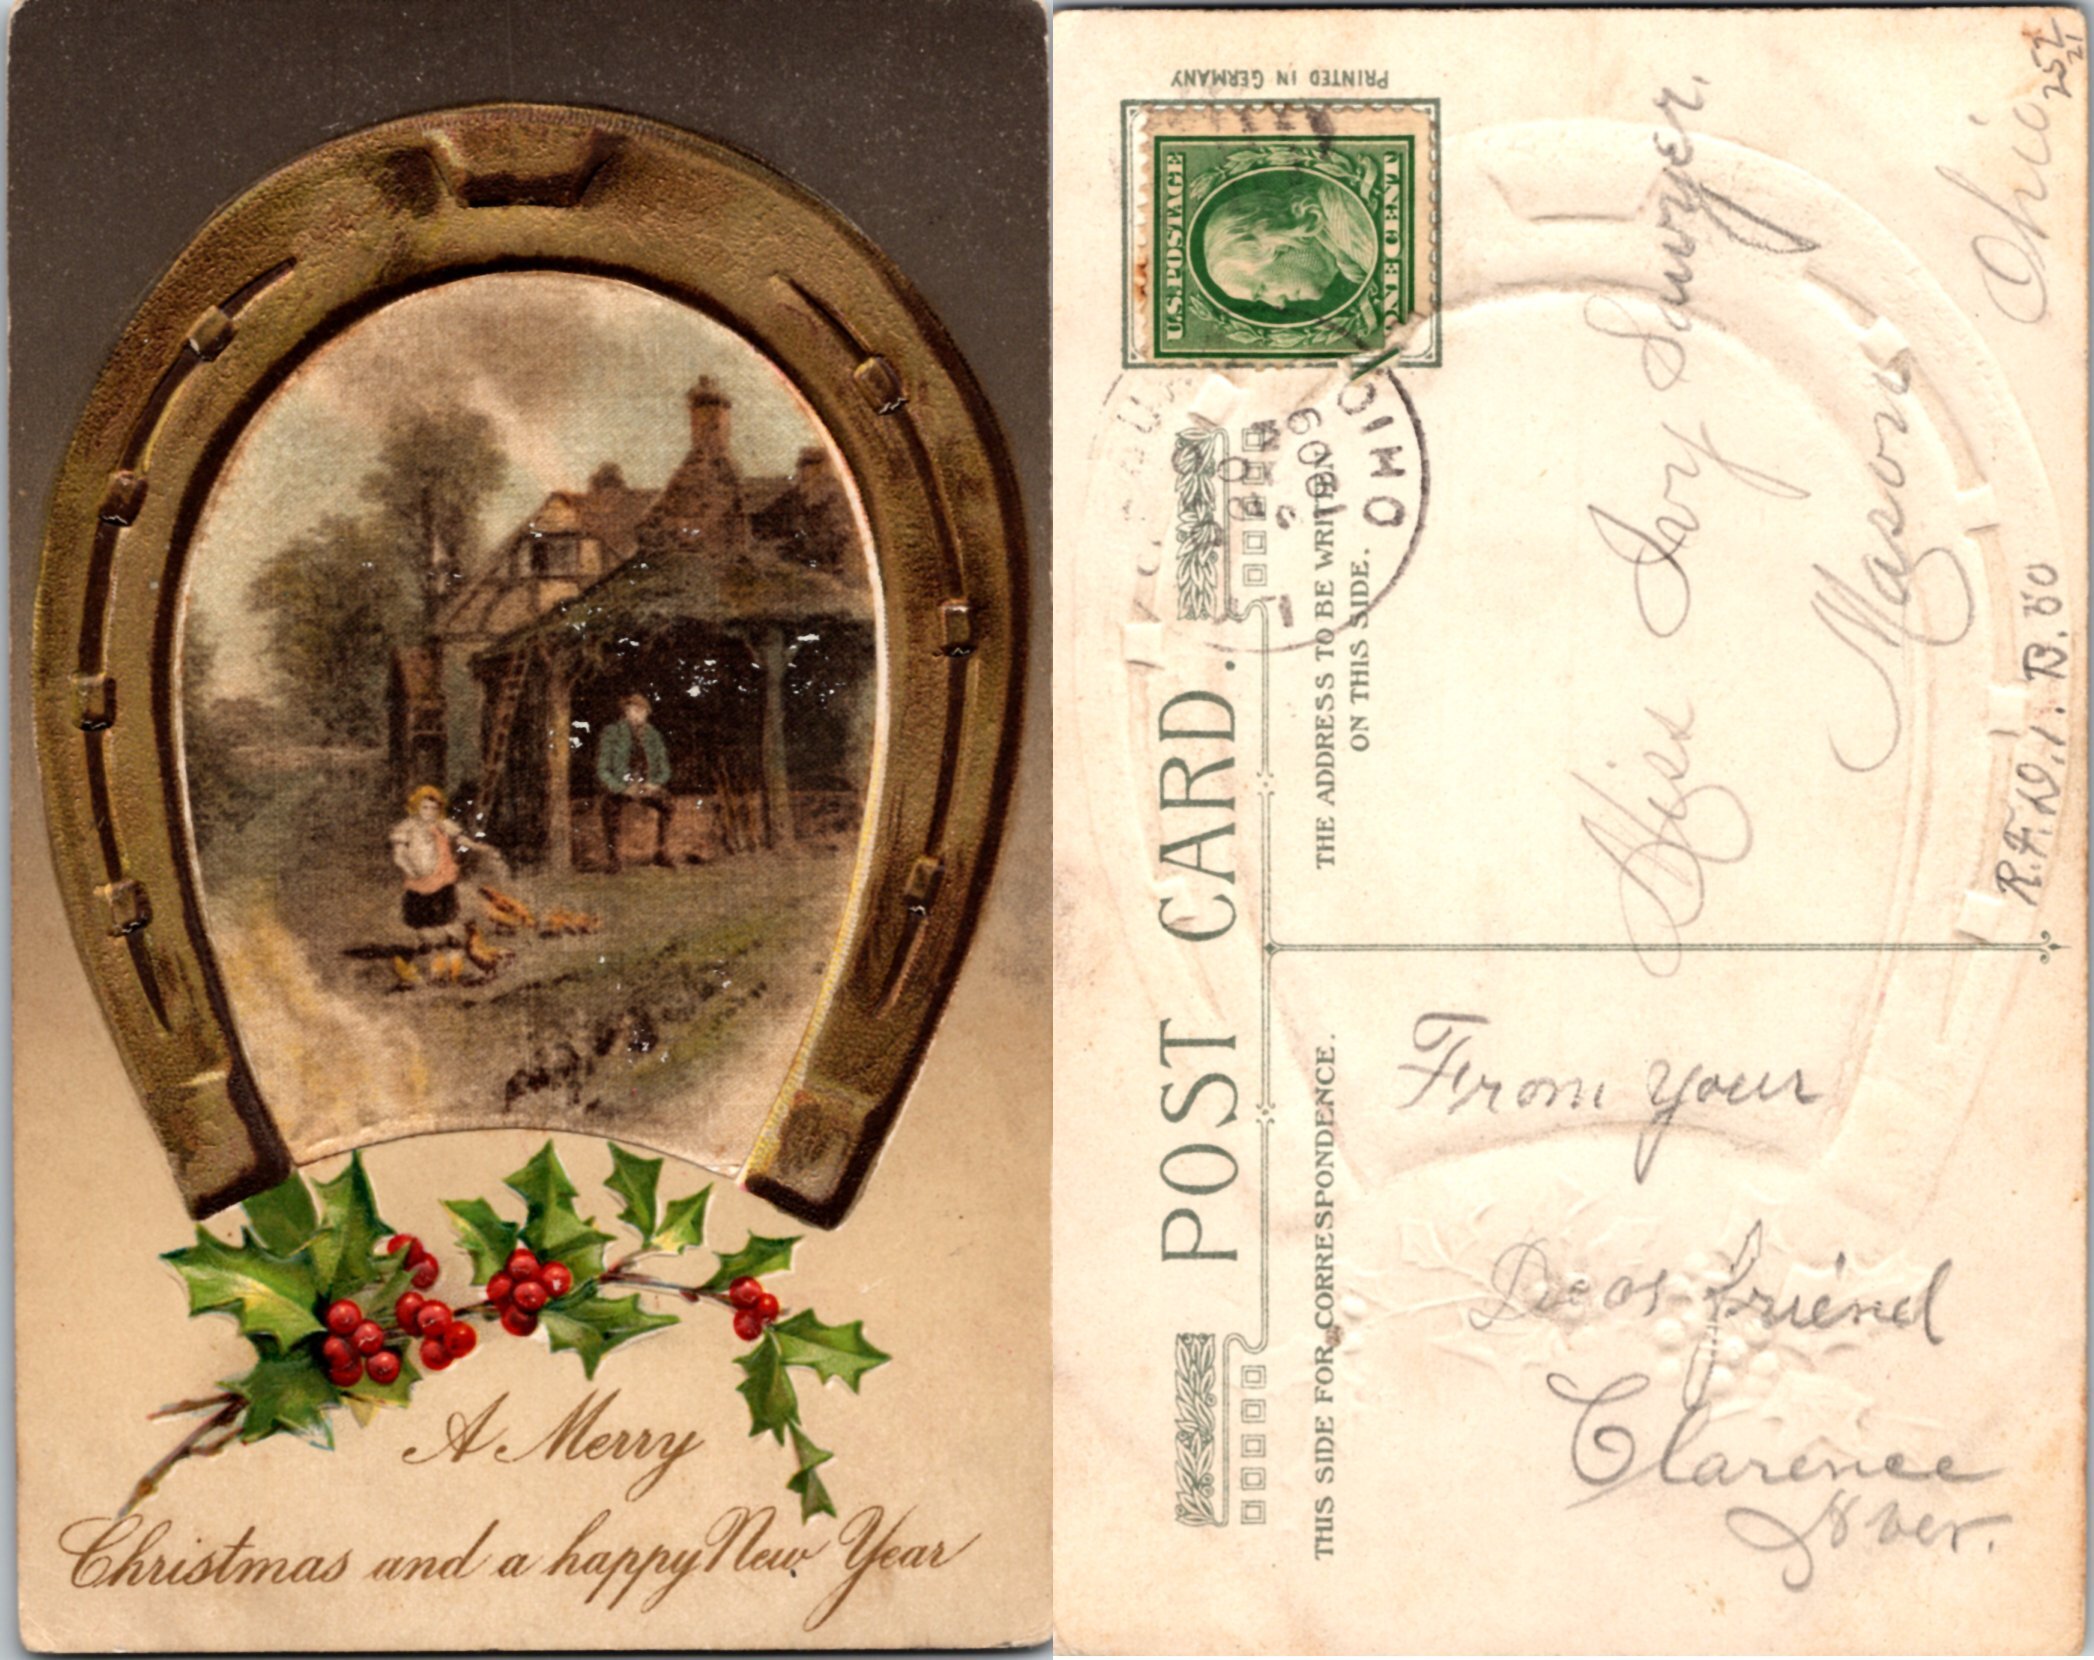 A Merry
Christmas and a happy New Year
PRINTED IN GERMANY
U.S. POSTAGE
ONE CENT
1909
OHIO
POST CARD.
THE ADDRESS TO BE WRITTEN
ON THIS SIDE.
THIS SIDE FOR CORRESPONDENCE.
Miss Ivy Sawyer.
Masons
Ohio
252
21
R.F.D. 1. B. 80
From your
Dear friend
Clarence